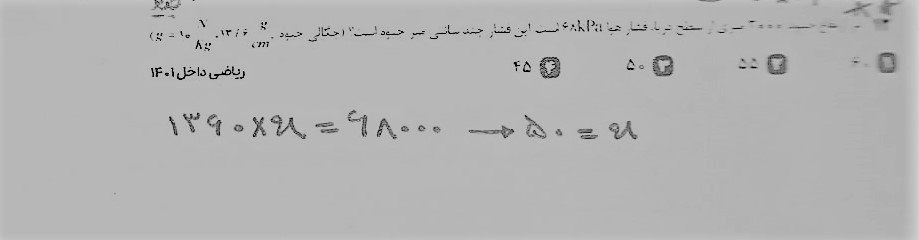 سطح دریا، فشار هوا ۶۸kPa است. این فشار چند سانتی متر جیوه است؟ (چگالی جیوه ۱۳/۶ g/cm³، g = ۱۰ N/kg)
۱ ۶۰ ۲ ۵۵ ۳ ۵۰ ۴ ۴۵
ریاضی داخل ۱۴۰۱
۱۳۶۰ × x = ۶۸۰۰۰ → ۵۰ = x